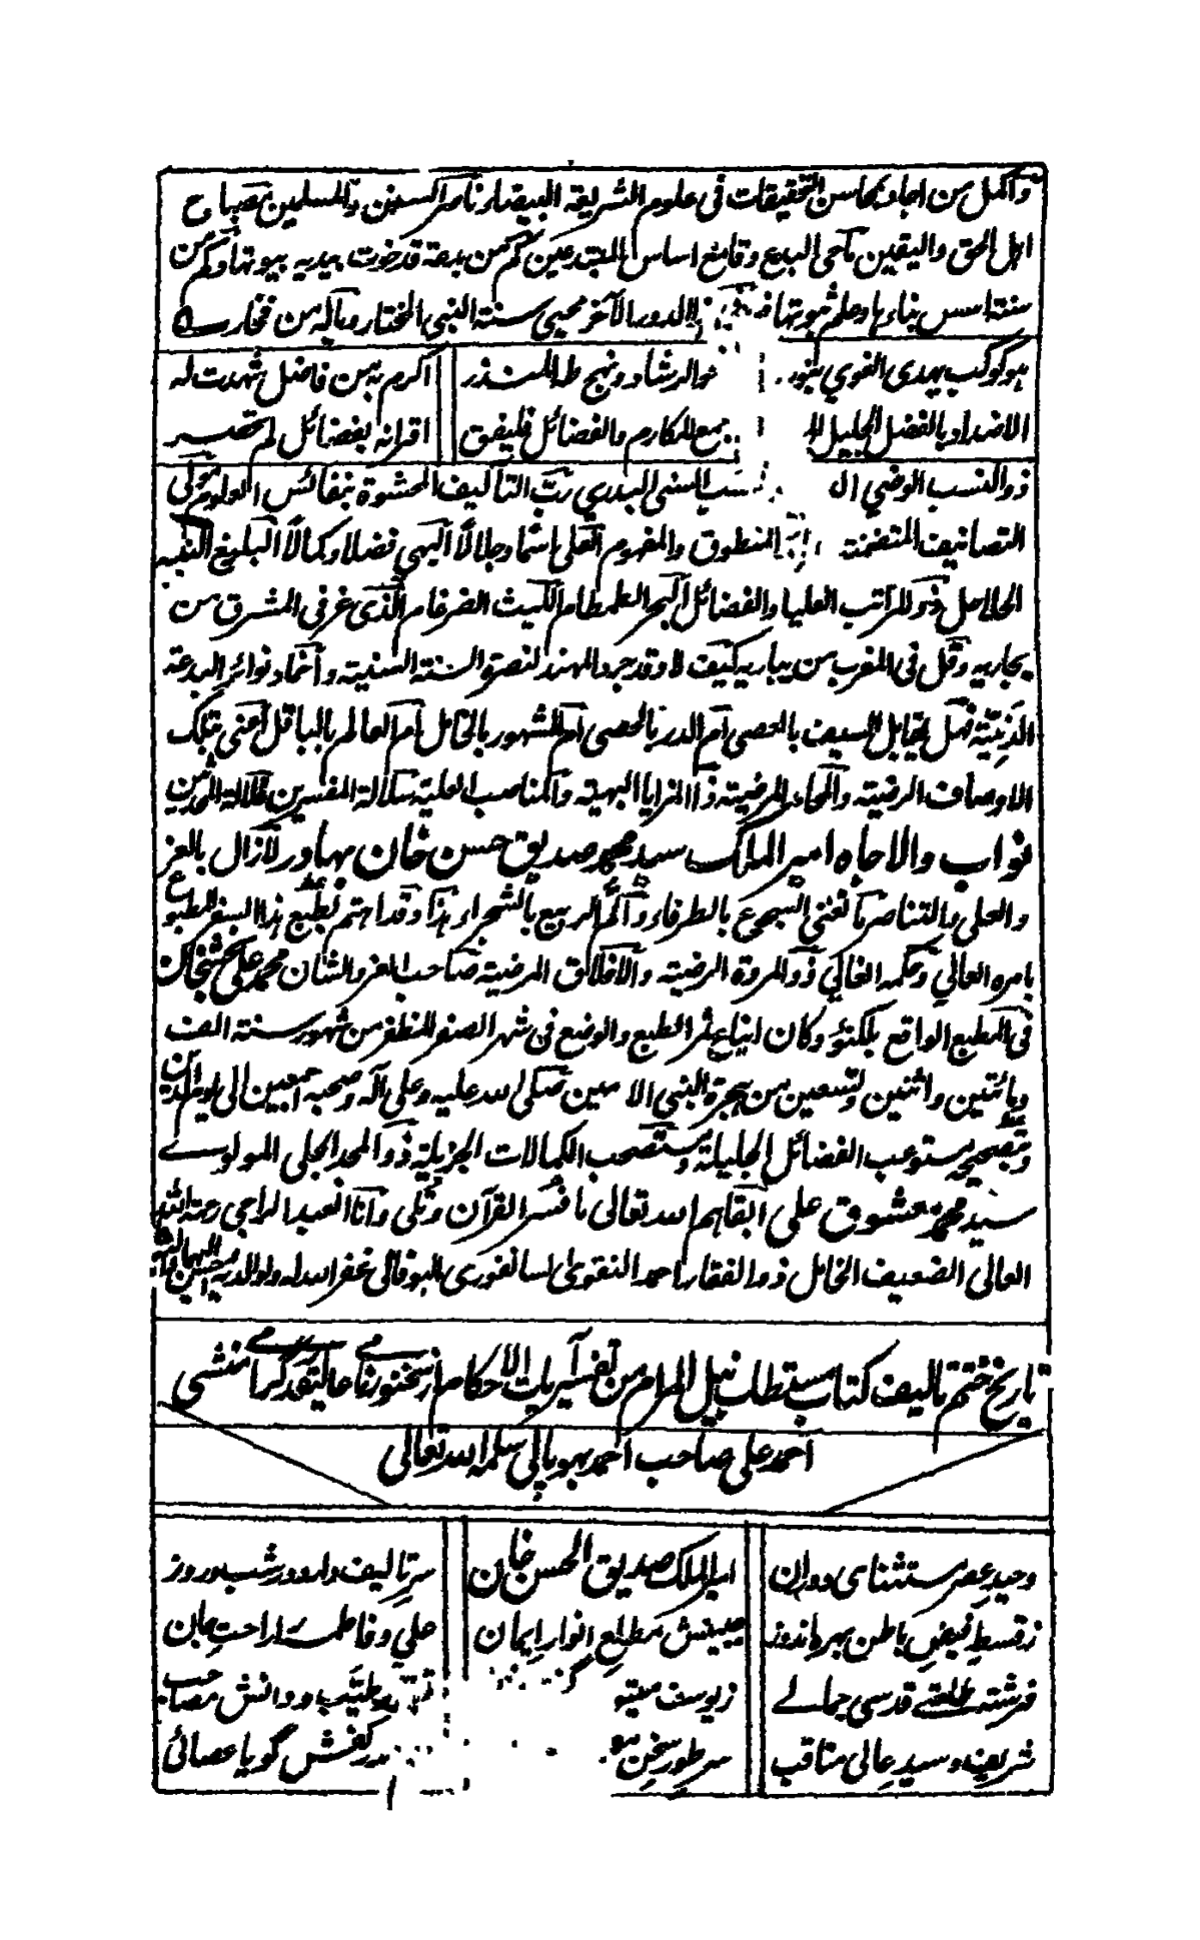 وآكمل من اجاد بمحاسن التحقيقات في علوم الشريعة البيضاء ناصر السنن والمسلمين مصباح
اهل الحق واليقين ماحي البدع وقامع اساس المبتدعين كم من بدعة قد خوت بيديه بيوتها وكم من
سنة اسس بناءها وعلم ثبوتها الدور الآخر محيي سنة النبي المختار وبآله من فخار
هو كوكب يهدي الغوي بنور الرشاد ونهج طه المنذر اكرم به من فاضل شهدت له
الاضداد بالفضل الجليل جمع المكارم والفضائل فليفق اقرانه بفضائل لم تحصر
ذو النسب الوضي السني البدري رب التآليف المحشوة بنفائس العلوم مولى
التصانيف المتضمنة المنطوق والمفهوم العلي اسما وجلالا البهي فضلا وكمالا البليغ النبيه
الحلاحل ذو المراتب العليا والفضائل البحر الطمطام الليث الضرغام الذي عز في المشرق من
يجاريه وقل في المغرب من يباريه كيف لا وقد جرد المهند لنصرة السنة السنية واخماد نوائر البدعة
الدنية فهل يقابل السيف بالعصى ام الدر بالحصى ام المشهور بالخامل ام العالم بالباقل اعني بتلك
الاوصاف الرضية والمحامد المرضية ذا المزايا البهية والمناصب العلية سلالة المفسرين كلالة المحدثين
نواب والا جاه امير الملك سيد محمد صديق حسن خان بهادر لا زال بالعز
والعلى والتناصر ما تغنى السجوع بالطرفاء وآلم الربيع بالشجراء هذا وقد اهتم بطبع هذا السفر المطبوع
بامره العالي وحكمه الغالي ذو المروة الرضية والاخلاق المرضية صاحب العز والشان محمد علي بخش خان
في المطبع الواقع بلكنؤ وكان ايناع ثمر الطبع والوضع في شهر الصفر المظفر من شهور سنة الف
ومائتين واثنين وتسعين من هجرة النبي الامين صلى الله عليه وعلى آله وصحبه اجمعين الى يوم الدين
وبتصحيحه مستوعب الفضائل الجليلة ومستصحب الكمالات الجزيلة ذو المجد الجلي المولوي
سيد محمد معشوق علي ابقاهم الله تعالى ما فسر القرآن وتلي وانا العبد الراجي رحمة الله
العالي الضعيف الخامل ذو الفقار احمد النقوي البهوفالي غفر الله له ولوالديه
تاريخ ختم تاليف كتاب مستطاب نيل المرام من تفسير آيات الاحكام از سخنور نامي منشي
احمد علي صاحب احمد بهوپالي سلمه الله تعالى
وحيد عصر مستثناى دوران امير الملك صديق الحسن خان سر تاليف دارد روز شب
ز قسط فيض باطن بهره اندوز جبينش مطلع انوار ايمان علي وفاطمه را راحت جان
فرشته طلعتے قدسي جمالے ز يوسف طيب ودانش مصاحب
شريف وسيد عالى مناقب سر طور سخن در كفش گويا عصائى